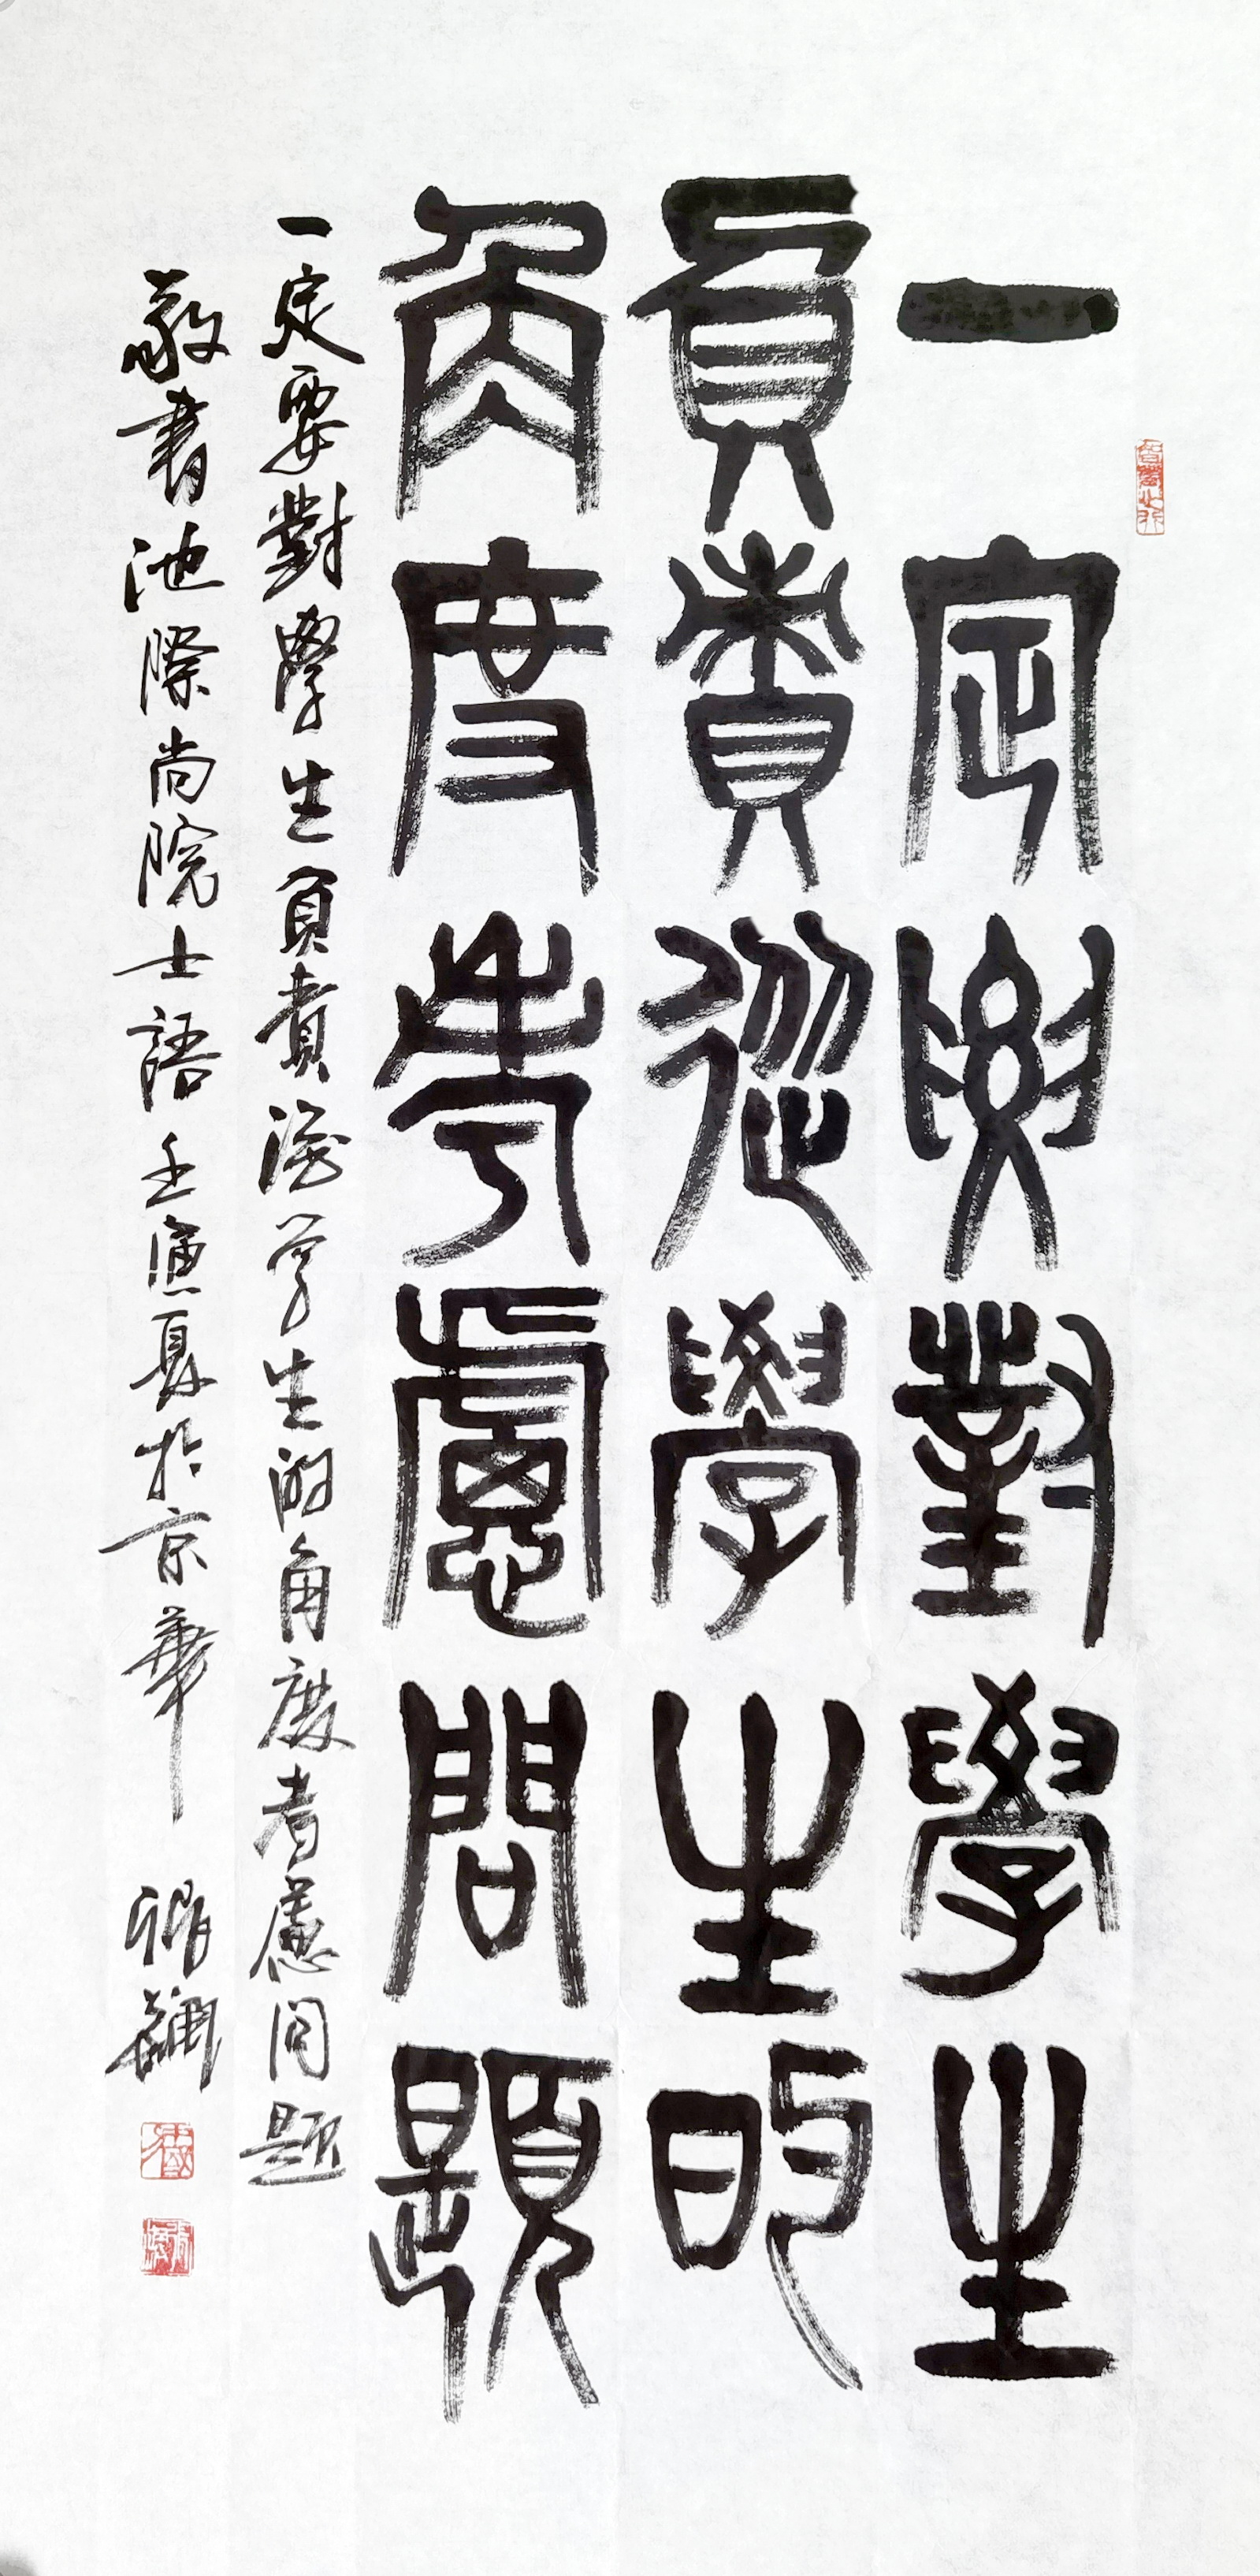 一定要對學生
負責從學生的
角度考慮問題
一定要對學生負責從学生的角度考慮問題
敬書池際尚院士語壬寅夏於京華